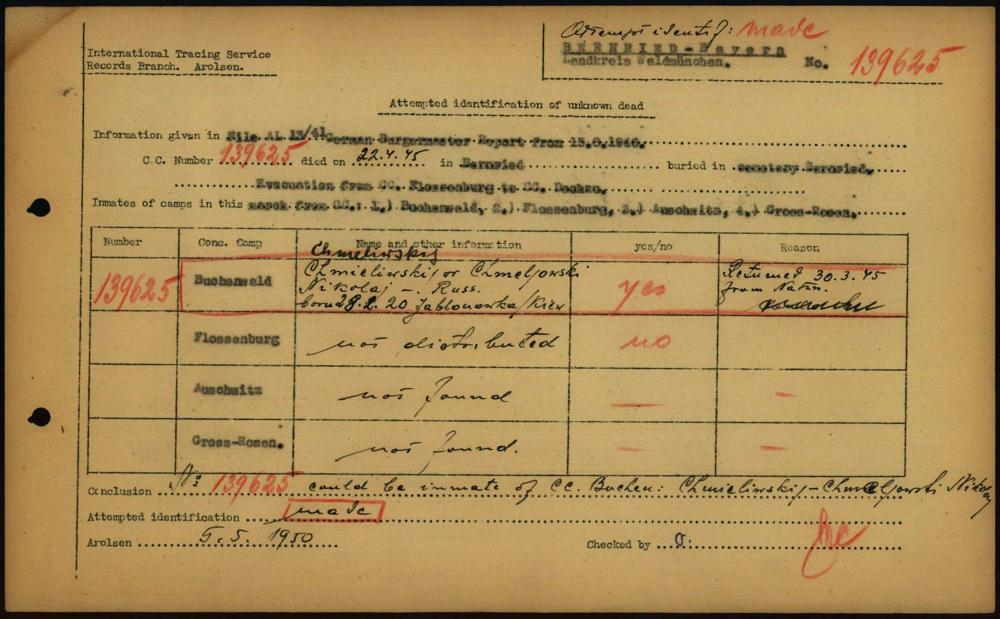 Attempt identif: made
International Tracing Service
Records Branch. Arolsen.
BERNRIED-Bayern
Landkreis Waldmünchen. No. 139625
Attempted identification of unknown dead
Information given in File AL 13/41 German Burgermaster Report from 15.8.1946.
C.C. Number 139625 died on 22.4.45 in Bernried buried in cemetery Bernried.
Evacuation from CC. Flossenburg to CC. Dachau.
Inmates of camps in this march from CC.: 1.) Buchenwald, 2.) Flossenburg, 3.) Auschwitz, 4.) Gross-Rosen.
Number Conc. Camp Name and other information yes/no Reason
Chmeliwskij
139625 Buchenwald Chmieliwskij or Chmeljowski yes Returned 30.3.45
Nikolaj -. Russ. from Natzw.
born 28.2.20 Jablonowka/Kiew
Flossenburg not distributed no
Auschwitz not found — —
Gross-Rosen. not found. — —
Conclusion No 139625 could be inmate of CC. Buchen: Chmieliwskij-Chmeljowski Nikolaj
Attempted identification made
Arolsen 5.5. 1950 Checked by O.